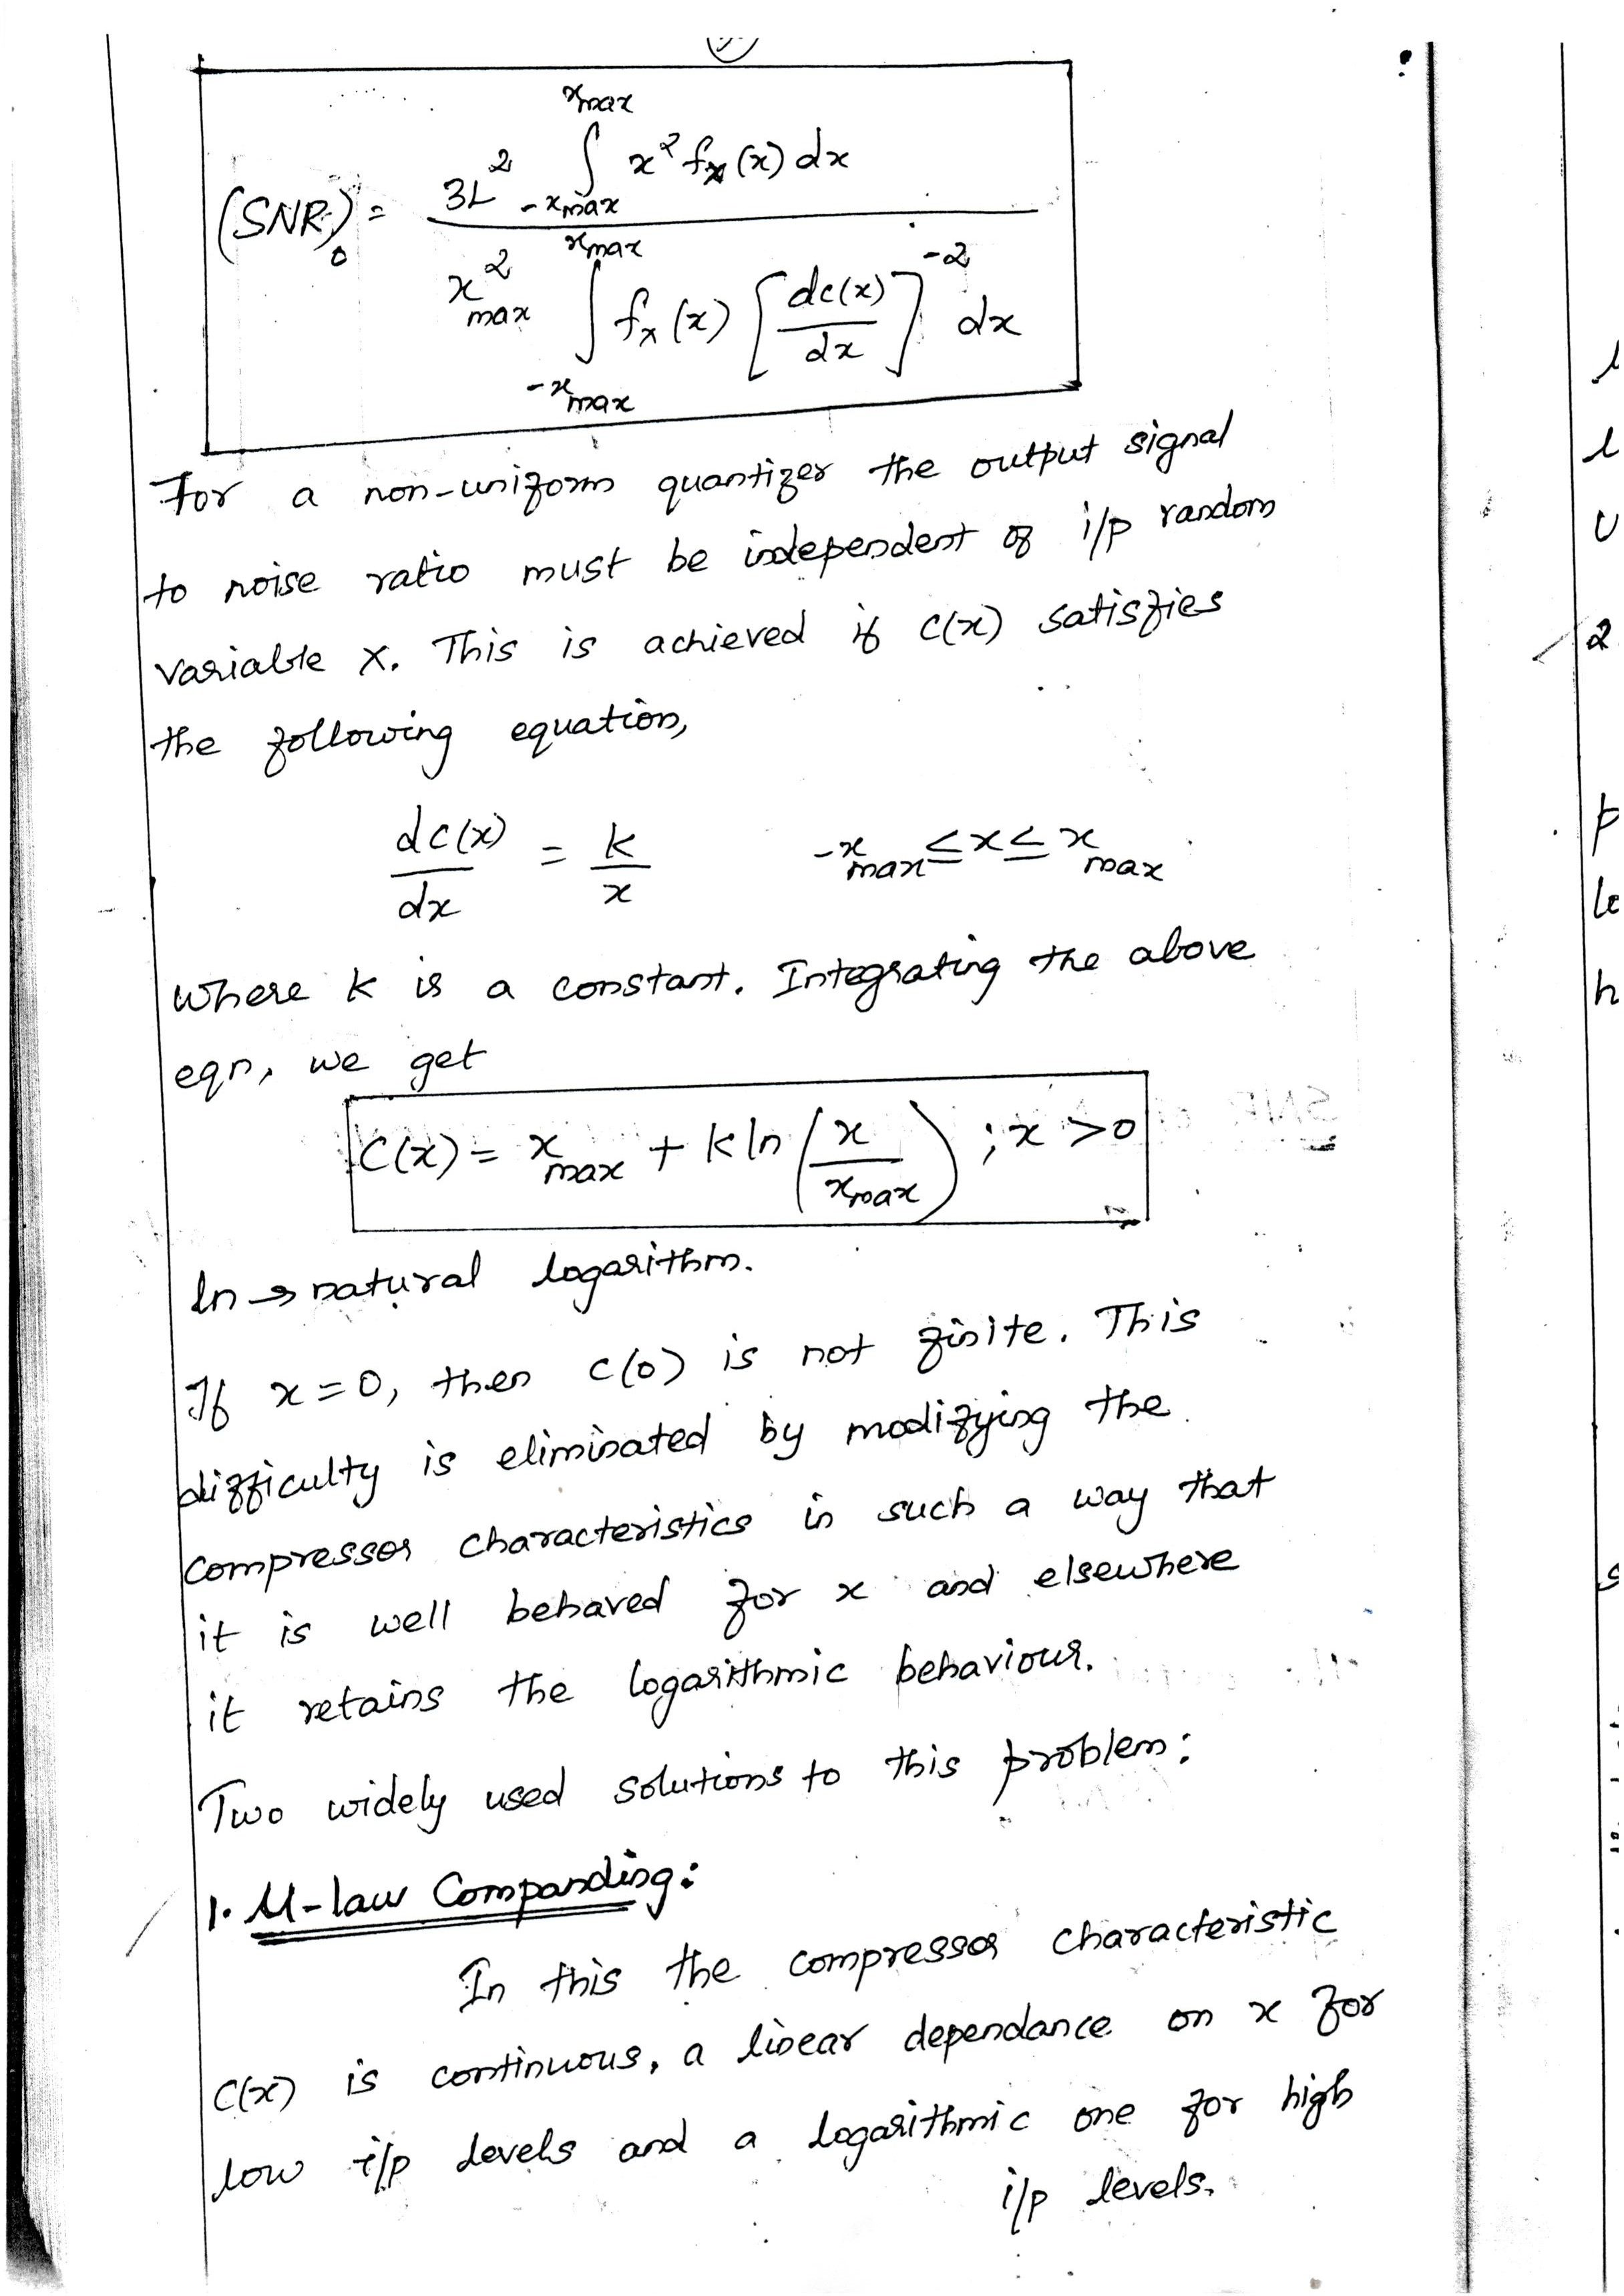 (SNR)₀ = 3L² ∫_{-xmax}^{xmax} x² fx(x) dx / x²max ∫_{-xmax}^{xmax} fx(x) [dc(x)/dx]⁻² dx
For a non-uniform quantizer the output signal
to noise ratio must be independent of i/p random
variable X. This is achieved if C(x) satisfies
the following equation,
dc(x)/dx = k/x   -xmax ≤ x ≤ xmax
where k is a constant. Integrating the above
eqn, we get
C(x) = xmax + k ln (x/xmax) ; x > 0
ln → natural logarithm.
If x = 0, then c(0) is not finite. This
difficulty is eliminated by modifying the
compressor characteristics in such a way that
it is well behaved for x and elsewhere
it retains the logarithmic behaviour.
Two widely used solutions to this problem:
1. μ-law Companding:
In this the compressor characteristic
C(x) is continuous, a linear dependance on x for
low i/p levels and a logarithmic one for high
i/p levels.